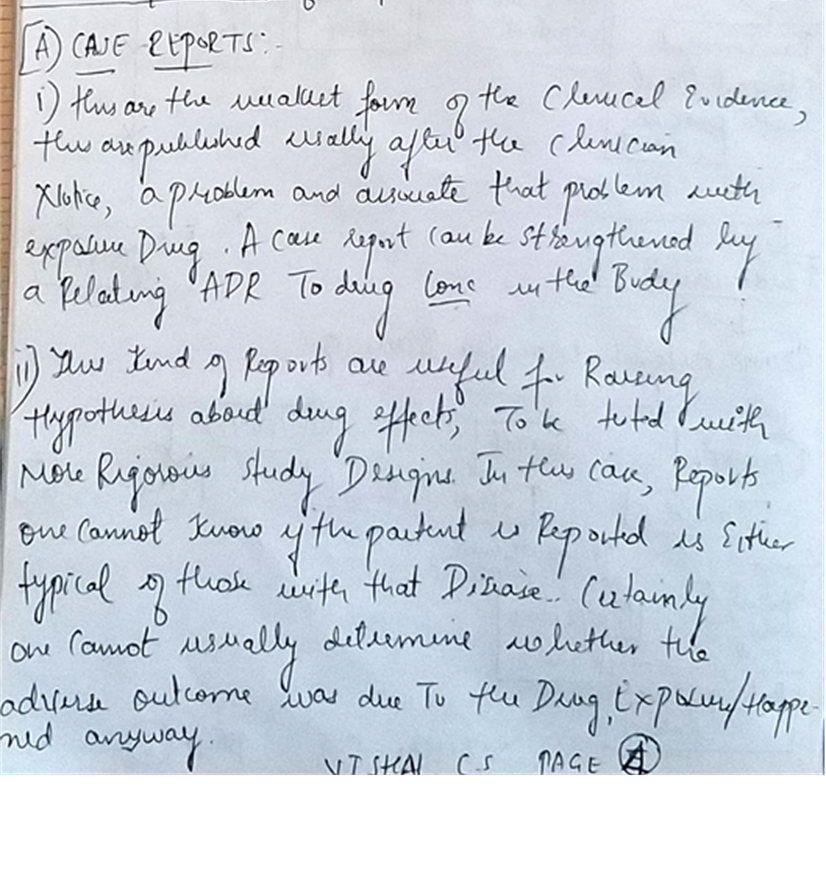 A) CASE REPORTS:-
i) this are the weakest form of the Clinical Evidence,
this are published usally after the Clinician
Notice, a problem and associate that problem with
exposure Drug. A case report can be strengthened by
a Relating ADR To drug Conc in the Body
ii) This kind of Reports are useful for Raising
Hypothesis about drug effects, To be tested with
More Rigorous study Designs. In this case, Reports
one cannot know if the patient is Reported is Either
typical of those with that Disease. Certainly
one cannot usually determine whether the
adverse outcome was due To the Drug, Exposure/Happe-
ned anyway.
VISHAL C.S PAGE 4